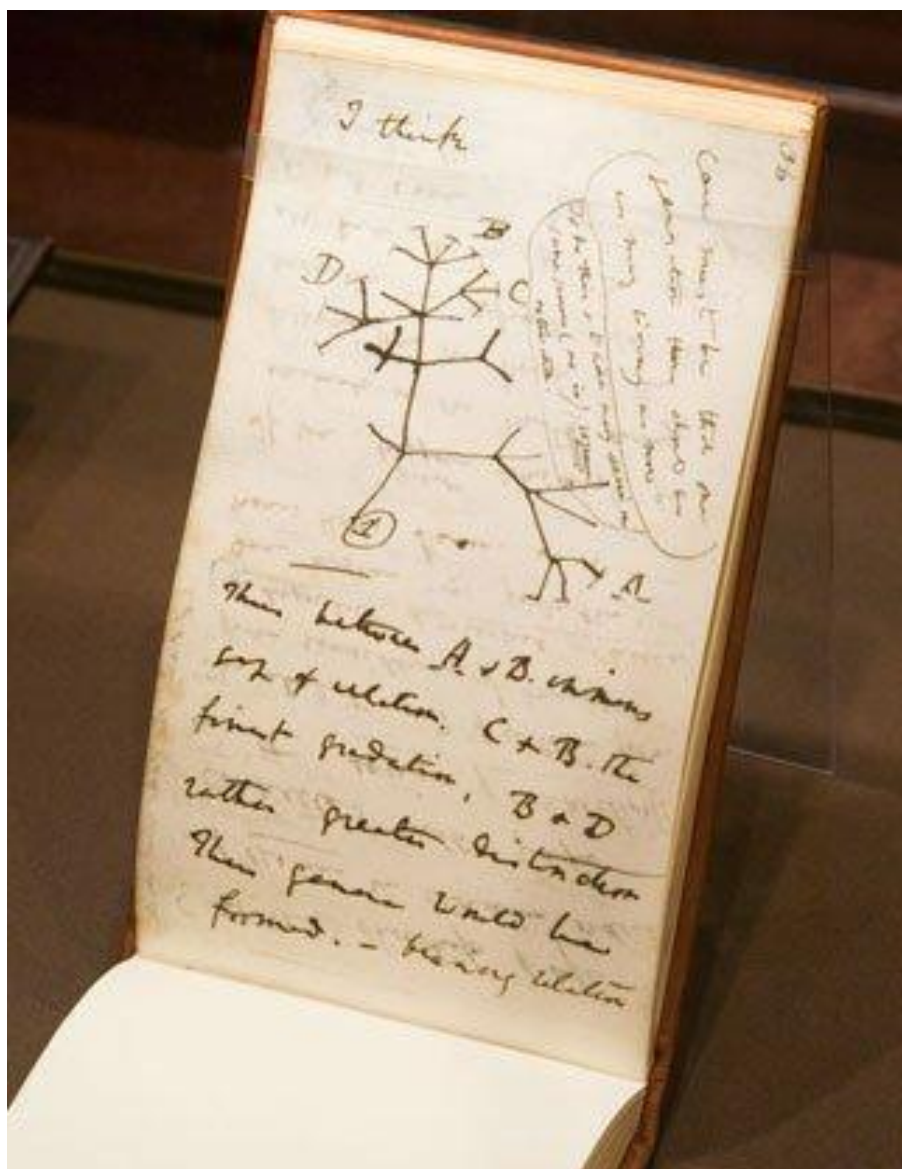 I think
B
D
C
1
A
36
Case must be that one
generation then should be
as many living as now.
To do this & to have many species in
same genus (as is) requires
extinction.
Thus between A. & B. immens
gap of relation. C & B. The
finest gradation, B & D
rather greater distinction
Thus genera would be
formed. — bearing relation